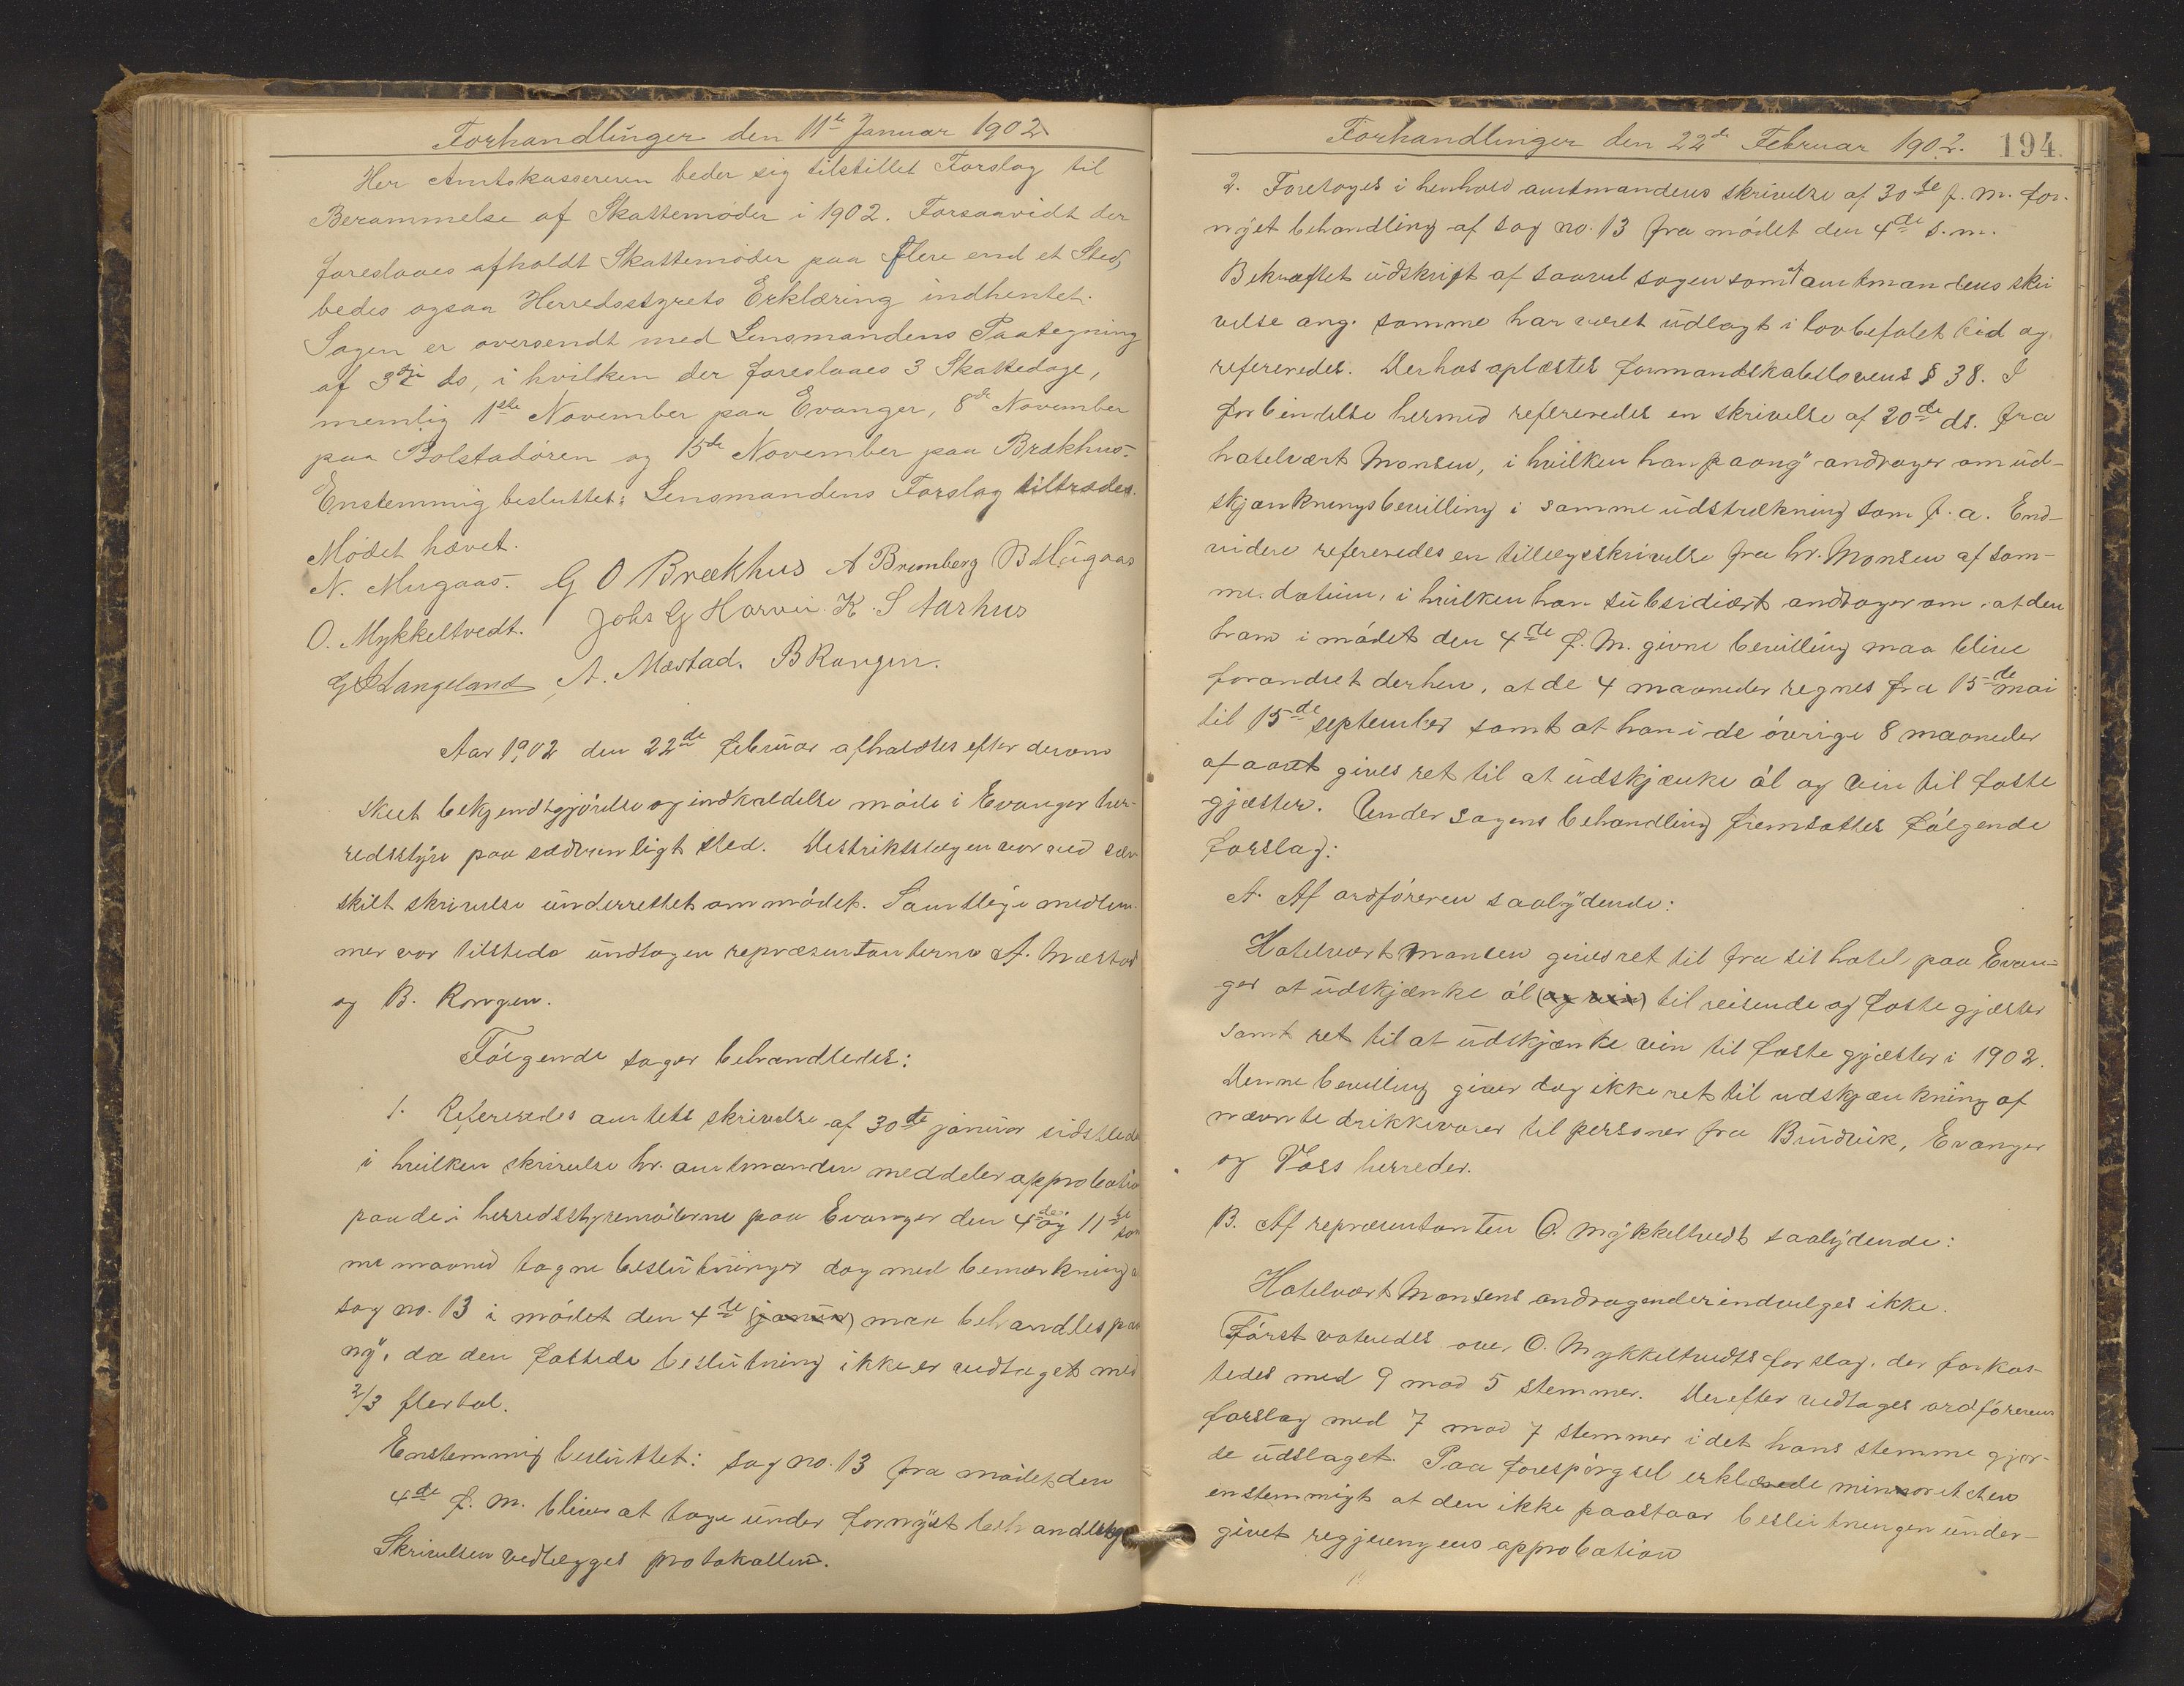 Forhandlinger den 11te Januar 1902
Hr Amtskassereren beder sig tilstillet Forslag til
Berammelse af Skattemøder i 1902. Forsaavidt der
foreslaaes afholdt Skattemøder paa flere end et Sted,
bedes ogsaa Herredsstyrets Erklæring indhentet.
Sagen er oversendt med Lensmandens Paategning
af 3die ds, i hvilken der foreslaaes 3 Skattedage,
nemlig 1ste November paa Evanger, 8de November
paa Bolstadøren og 15de November paa Brækhus.
Enstemmig besluttet: Lensmandens Forslag tiltrædes.
Mødet hævet.
N. Mugaas. G O Brækhus A Brunborg B Mugaas
O. Mykkeltvedt. Johs G Horvei. K. S Aarhus
G Langeland A. Mæstad. B Rongen.
Aar 1902 den 22de februar afholdtes efter derom
skeet bekjendtgjørelse og indkaldelse møde i Evanger her-
redsstyre paa sædvanligt sted. Distriktslægen var ved sær-
skilt skrivelse underrettet om mødet. Samtlige medlem-
mer var tilstede undtagen repræsentanterne A. Mæstad
og B. Rongen.
Følgende sager behandledes:
1. Refereredes amtets skrivelse af 30te januar sidstled.
i hvilken skrivelse hr. amtmanden meddeler approbation
paa de i herredsstyremøderne paa Evanger den 4de og 11te sam
me maaned tagne beslutninger dog med bemærkning a
sag no. 13 i mødet den 4de (januar) maa behandles paa
ny, da den fattede beslutning ikke er vedtaget med
2/3 flertal.
Enstemmig besluttet: Sag no. 13 fra mødet den
4de f. m. bliver at tage under fornyet behandling
Skrivelsen vedlægges protokollen.
Forhandlinger den 22de Februar 1902. 194.
2. Foretoges i henhold amtmandens skrivelse af 30te f. m. for-
nyet behandling af sag no. 13 fra mødet den 4de s. m.
Bekræftet udskrift af saavel sagen som af amtmandens skri
velse ang. samme har været udlagt i lovbefalet tid og
refereredes. Derhos oplæstes formandskabslovens § 38. I
forbindelse hermed refereredes en skrivelse af 20de ds. fra
hotelvært Monsen, i hvilken han paany andrager om ud-
skjænkningsbevilling i samme udstrækning som f. a. End-
videre refereredes en tillægsskrivelse fra hr. Monsen af sam-
me datum, i hvilken han subsidiært andrager om, at den
ham i mødet den 4de f. m. givne bevilling maa blive
forandret derhen, at de 4 maaneder regnes fra 15de mai
til 15de september samt at han i de øvrige 8 maaneder
af aaret gives ret til at udskjænke øl og vin til faste
gjæster. Under sagens behandling fremsattes følgende
forslag:
A. Af ordføreren saalydende:
Hotelvært Monsen gives ret til fra sit hotel paa Evan-
ger at udskjænke øl (og vin) til reisende og faste gjæster
samt ret til at udskjænke vin til faste gjæster i 1902.
Denne bevilling giver dog ikke ret til udskjænkning af
nævnte drikkevarer til personer fra Bruvik, Evanger
og Voss herreder.
B. Af repræsentanten O. Mykkeltvedt saalydende:
Hotelvært Monsens andragender indvilges ikke.
Først voteredes over O. Mykkeltvedts forslag, der forkas-
tedes med 9 mod 5 stemmer. Derefter vedtages ordførerens
forslag med 7 mod 7 stemmer idet hans stemme gjor-
de udslaget. Paa forespørgsel erklærede minoriteten
enstemmigt at den ikke paastaar beslutningen under-
givet regjeringens approbation